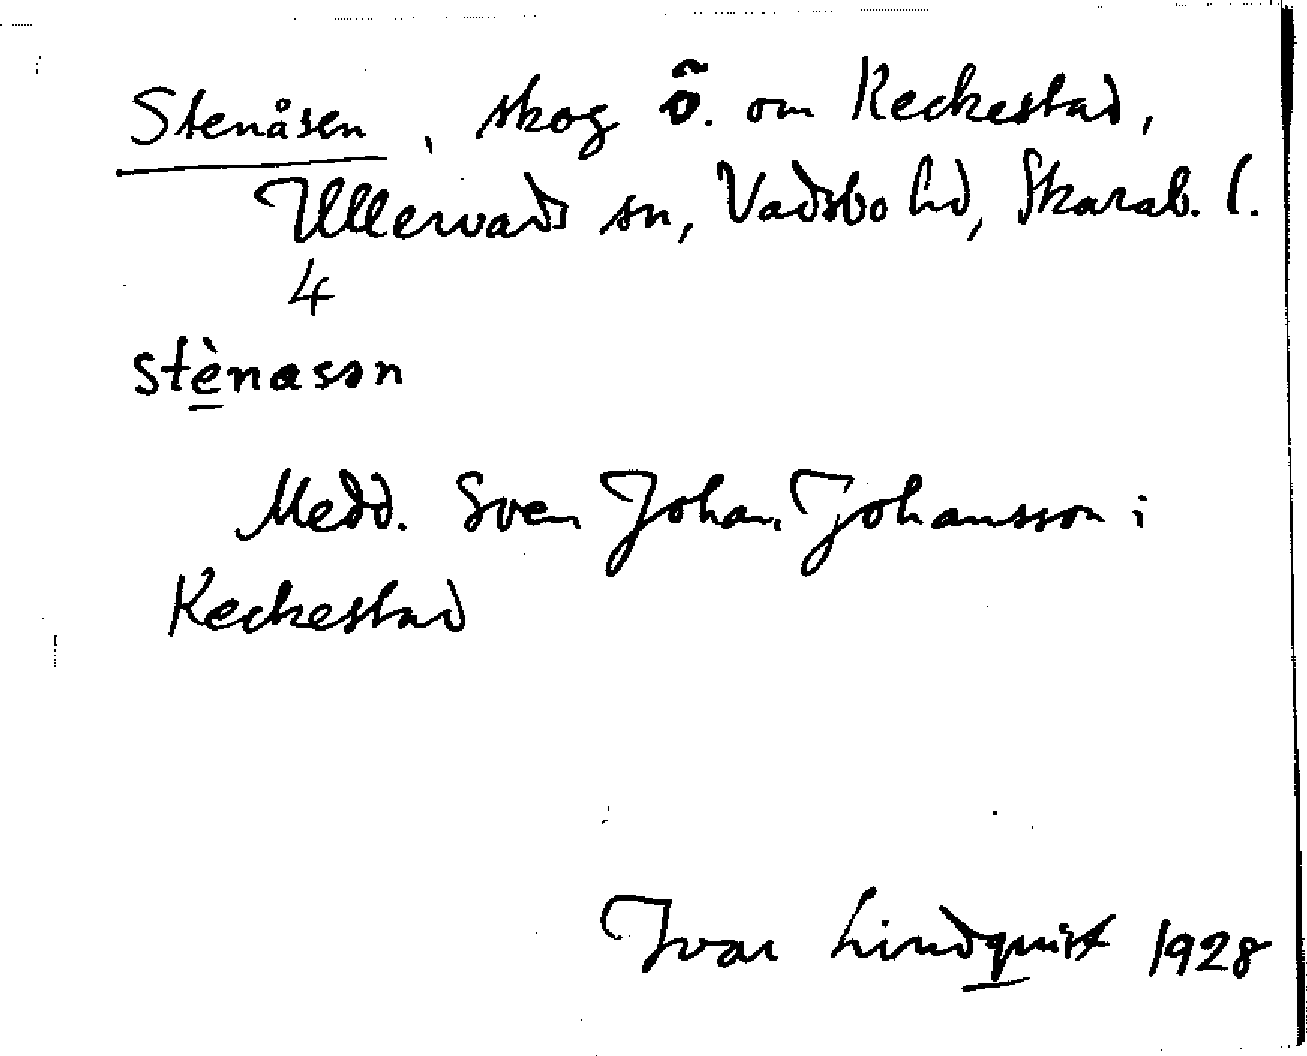 Stenåsen, skog ö. om Keckestad,
Ullervads sn, Vadsbo hd, Skarab. l.
4
stènasən
Medd. Sven Johan Johansson i
Keckestad
Ivar Lindquist 1928